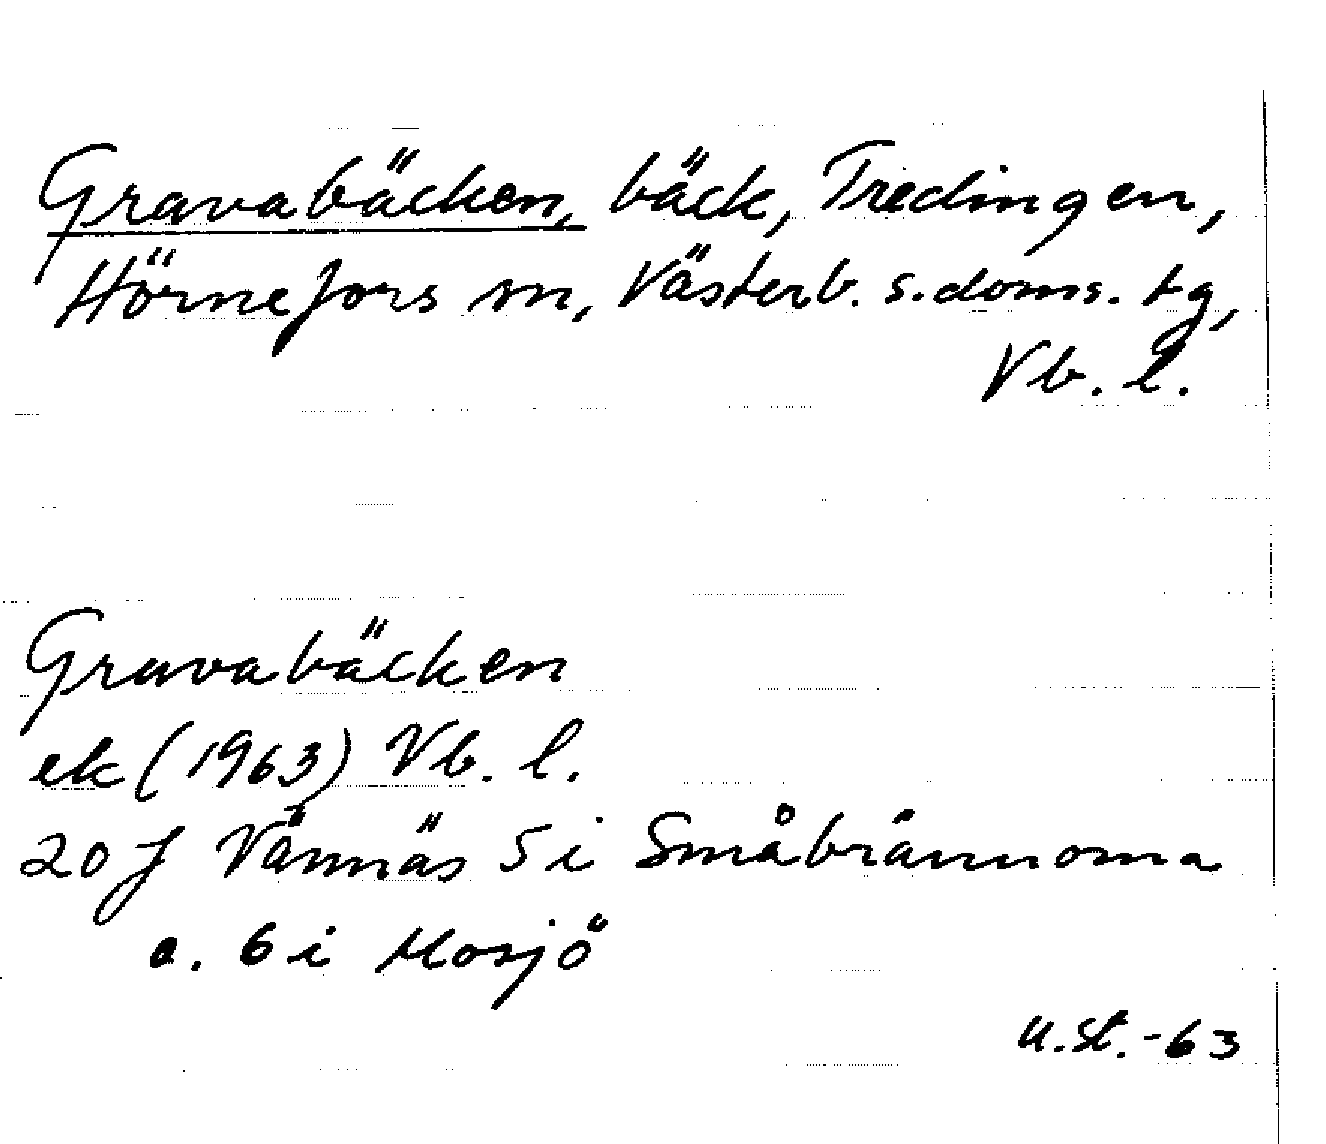 Gravabäcken, bäck, Tredingen,
Hörnefors sn, Västerb. s. doms. tg,
Vb. l.
Gravabäcken
ek (1963) Vb. l.
20 J Vännäs 5 i Småbrännorna
o. 6 i Hosjö
U.St. -63